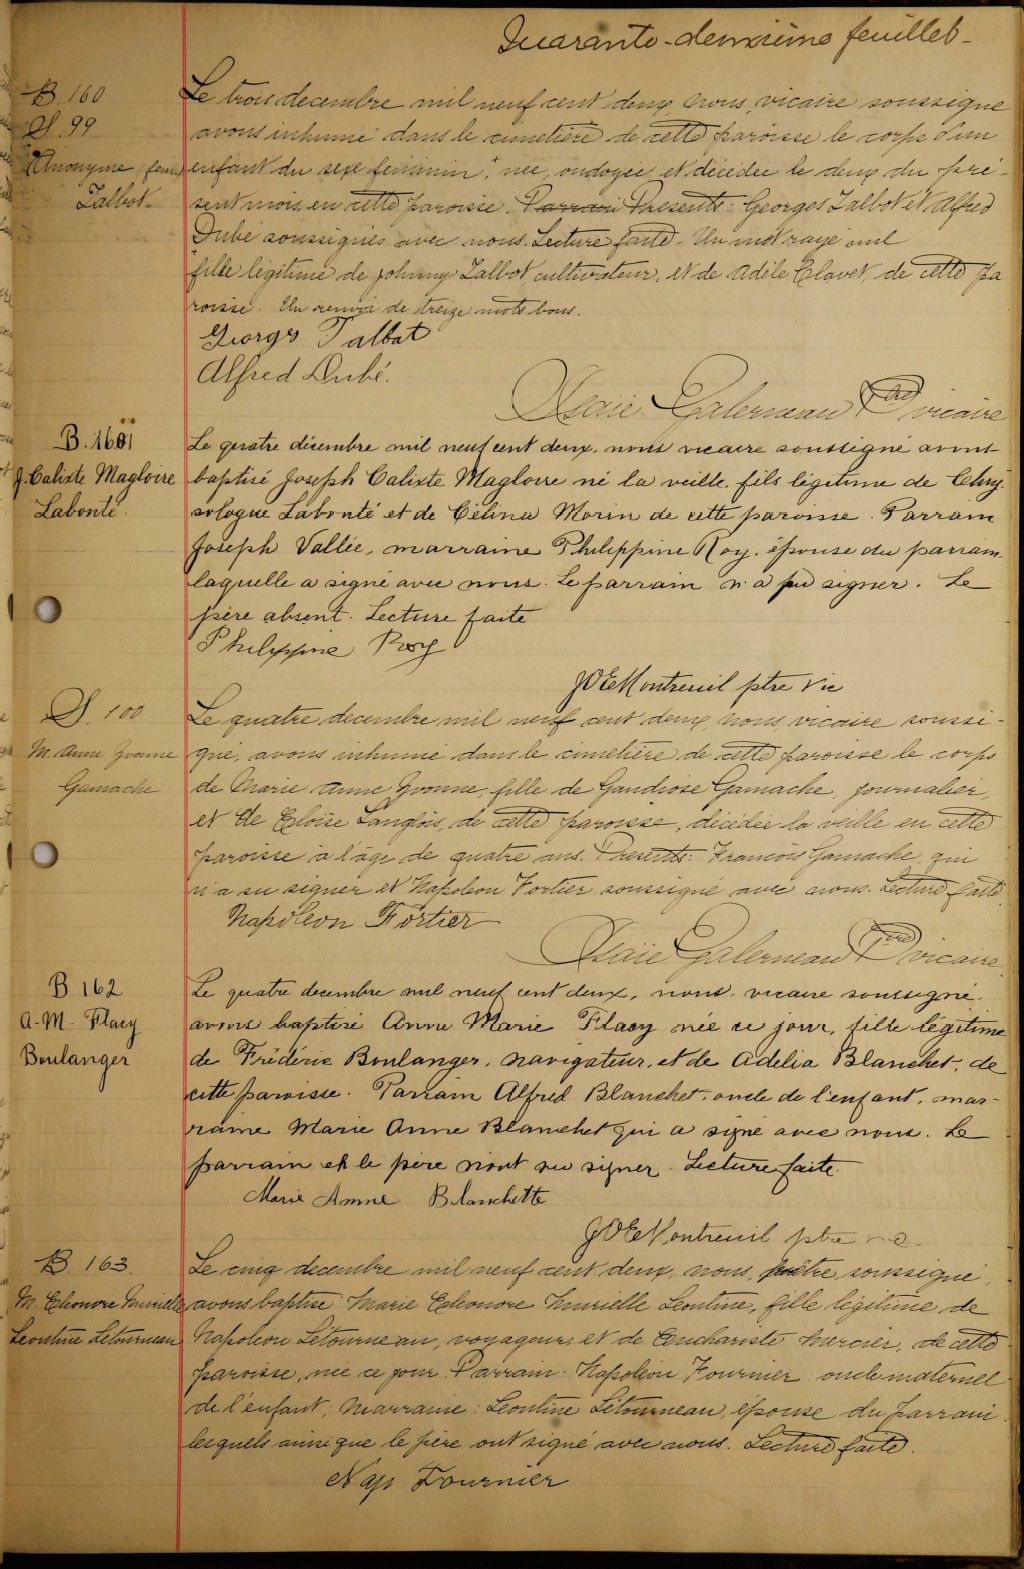 Quarante-deuxième feuillet-
B. 160
S. 99
Anonyme fem.
Talbot
Le trois decembre mil neuf cent deux, nous, vicaire soussigné
avons inhumé dans le cimetière de cette paroisse le corps d'un
enfant du sexe feminin, + née, ondoyée et décédée le deux du pré-
sent mois en cette paroisse. Parrain Presents: Georges Talbot et Alfred
Dubé soussignés avec nous. Lecture faite. Un mot rayé nul
fille légitime de Johnny Talbot, cultivateur, et de Adèle Clavet, de cette pa
roisse. Un renvoi de treize mots bons.
Georgs Talbot
Alfred Dubé.
Isaïe Galerneau Ptre vicaire
B. 161
J. Calixte Magloire
Labonté.
Le quatre décembre mil neuf cent deux, nous vicaire soussigné avons
baptisé Joseph Calixte Magloire né la veille, fils légitime de Chry-
sologue Labonté et de Célina Morin de cette paroisse. Parrain
Joseph Vallée, marraine Philippine Roy, épouse du parrain
laquelle a signé avec nous. Le parrain n'a pu signer. Le
père absent. Lecture faite
Philippine Roy
JOEMontreuil ptre Vic
S. 100
M. Anne Yvonne
Gamache
Le quatre decembre mil neuf cent deux, nous, vicaire soussi-
gné, avons inhumé dans le cimetière de cette paroisse le corps
de Marie Anne Yvonne, fille de Gaudiose Gamache, journalier,
et de Eloïse Langlois, de cette paroisse, décédée la veille en cette
paroisse à l'âge de quatre ans. Presents: François Gamache, qui
n'a su signer et Napoléon Fortier soussigné avec nous. Lecture faite.
Napoléon Fortier
Isaïe Galerneau Ptre vicaire
B 162
A-M- Flacy
Boulanger
Le quatre decembre mil neuf cent deux, nous vicaire soussigné
avons baptisé Anne Marie Flacy née ce jour, fille légitime
de Frédéric Boulanger, navigateur, et de Adelia Blanchet, de
cette paroisse. Parrain Alfred Blanchet, oncle de l'enfant, mar-
raine Marie Anne Blanchet qui a signé avec nous. Le
parrain et le père n'ont su signer. Lecture faite.
Marie Anne Blanchette
JOEMontreuil ptre vic.
B. 163
M. Eleonore Murielle
Leontine Letourneau
Le cinq decembre mil neuf cent deux, nous, prêtre soussigné,
avons baptisé Marie Eleonore Murielle Leontine, fille légitime de
Napoléon Létourneau, voyageur, et de Eucharиste Mercier, de cette
paroisse, née ce jour. Parrain: Napoléon Fournier oncle maternel
de l'enfant, Marraine: Leontine Létourneau, épouse du parrain
lesquels ainsi que le père ont signé avec nous. Lecture faite.
Nap Fournier